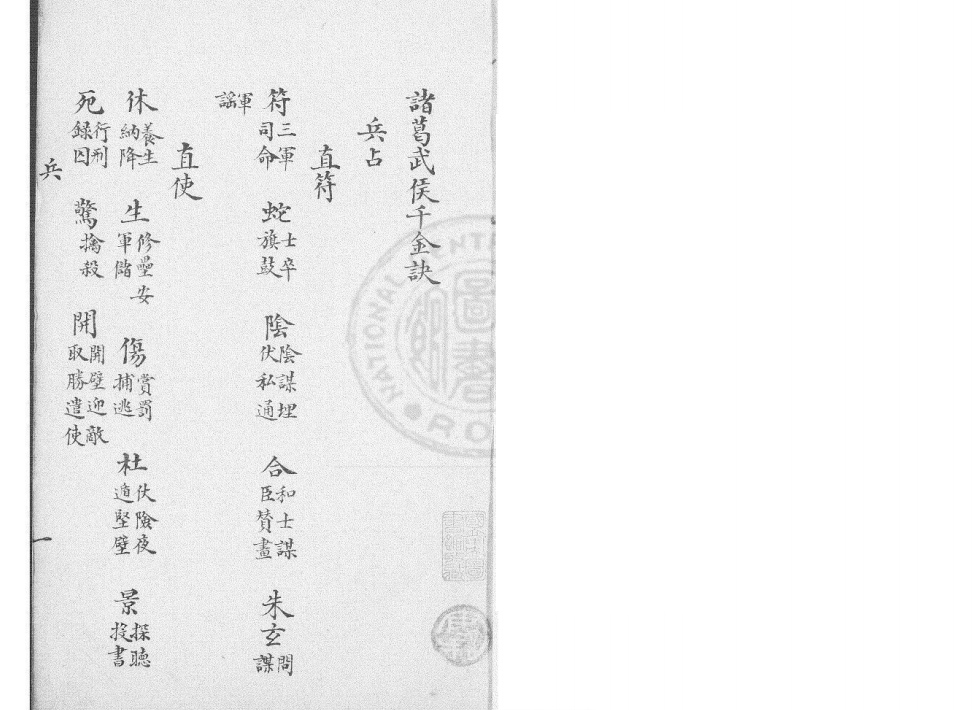 諸葛武侯千金訣
兵占
直符
符三軍司命 蛇士卒旗鼓 陰陰謀埋伏私通 合和士謀臣贊畫 朱玄問謀
軍謠
直使
休養生納降 生修壘安軍儲 傷賞罰捕逃 杜伏險夜遁堅壁 景探聽投書
死行刑錄囚 驚擒殺 開開壁迎敵取勝遣使
兵 一
NATIONAL CENTRA
圖書
RO